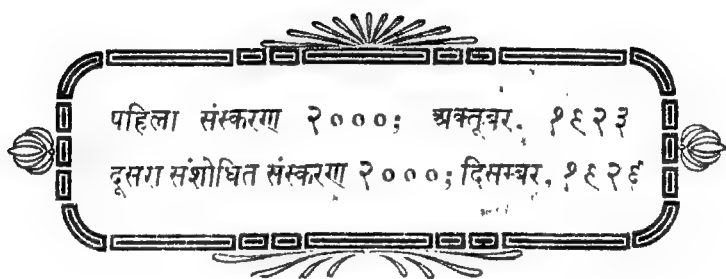 पहिला संस्करण २०००; अक्तूबर, १९२३
दूसरा संशोधित संस्करण २०००; दिसम्बर, १९२६